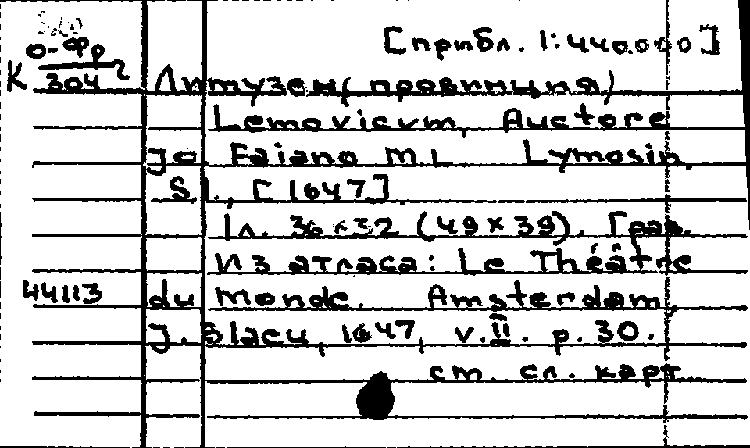 [прибл. 1:440.000]
К о-Фр
304 2
Лимузен (провинция)
Lemovicum, Auctore
Jo Faiano M.L Lymosin.
S.l., [1647]
1 л. 36×32 (49×39). Грав.
Из атласа: Le Théâtre
44113 du Monde. Amsterdam,
J. Blaeu, 1647, v.II. p.30.
см. сл. карт